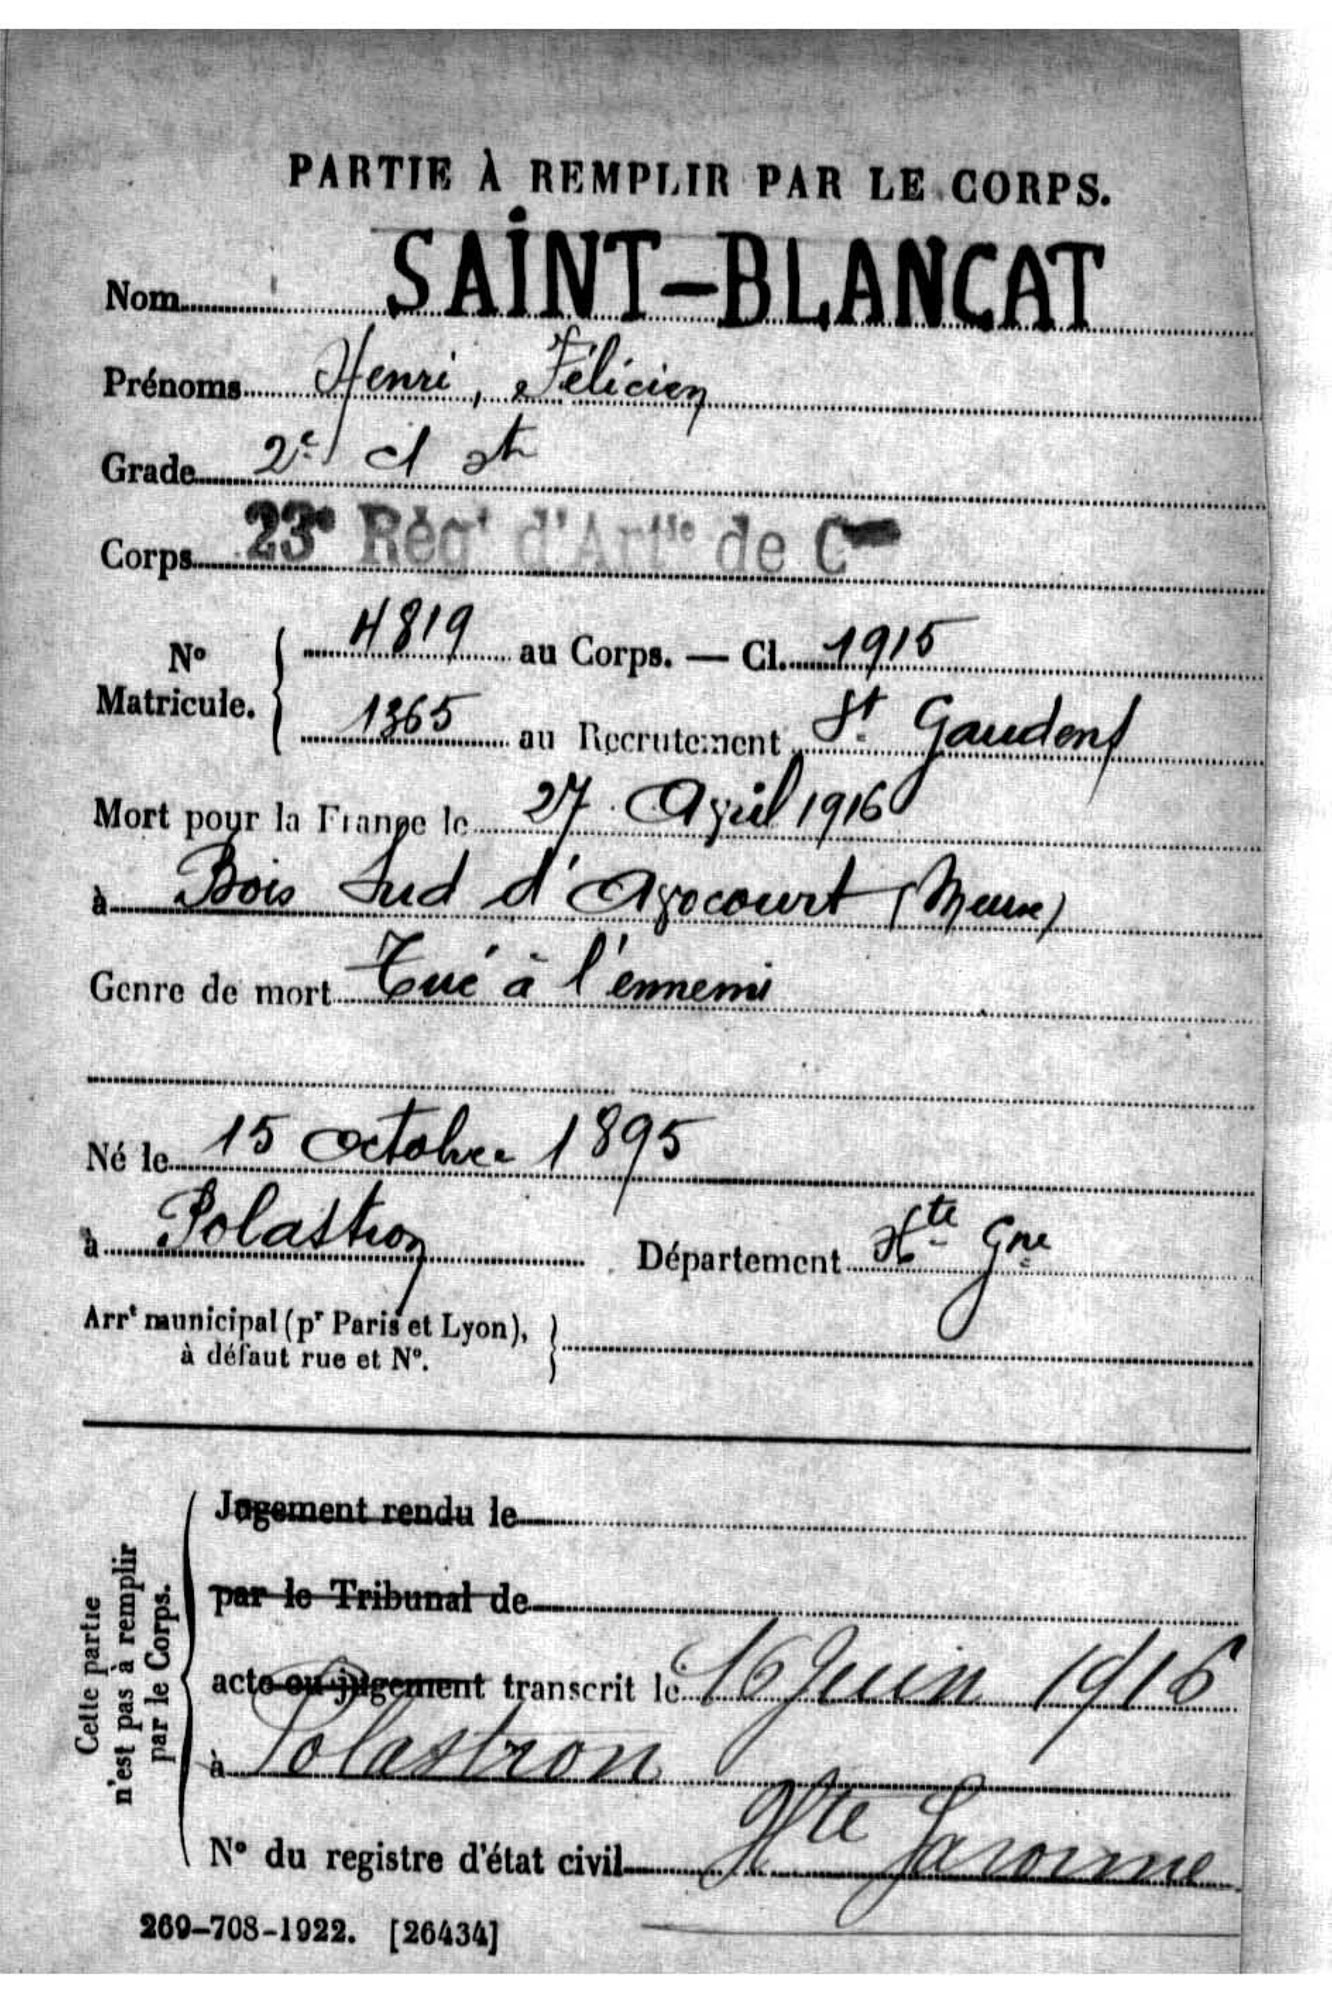 PARTIE À REMPLIR PAR LE CORPS.
Nom SAINT-BLANCAT
Prénoms Henri, Félicien
Grade 2e cl
Corps 23e Régt d'Artie de C
No Matricule. 4819 au Corps. — Cl. 1915
1365 au Recrutement St Gaudens
Mort pour la France le 27 Avril 1916
à Bois Sud d'Avocourt (Meuse)
Genre de mort Tué à l'ennemi
Né le 15 octobre 1895
à Polastron Département Hte Gne
Arrt municipal (pr Paris et Lyon),
à défaut rue et No.
Cette partie
n'est pas à remplir
par le Corps.
Jugement rendu le
par le Tribunal de
acte ou jugement transcrit le 16 Juin 1916
à Polastron
Hte Garonne
No du registre d'état civil
269-708-1922. [26434]